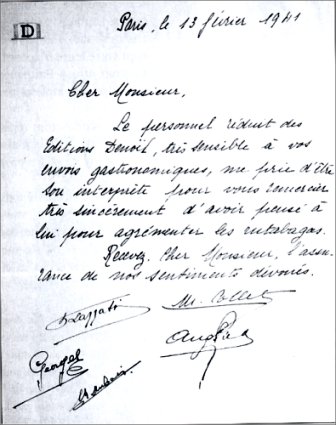 D
Paris, le 13 février 1941
Cher Monsieur,
Le personnel réduit des
Editions Denoël, très sensible à vos
envois gastronomiques, me prie d'être
son interprète pour vous remercier
très sincèrement d'avoir pensé à
lui pour agrémenter les rutabagas.
Recevez, Cher Monsieur, l'assu-
rance de nos sentiments dévoués.
M. Collet
Georges